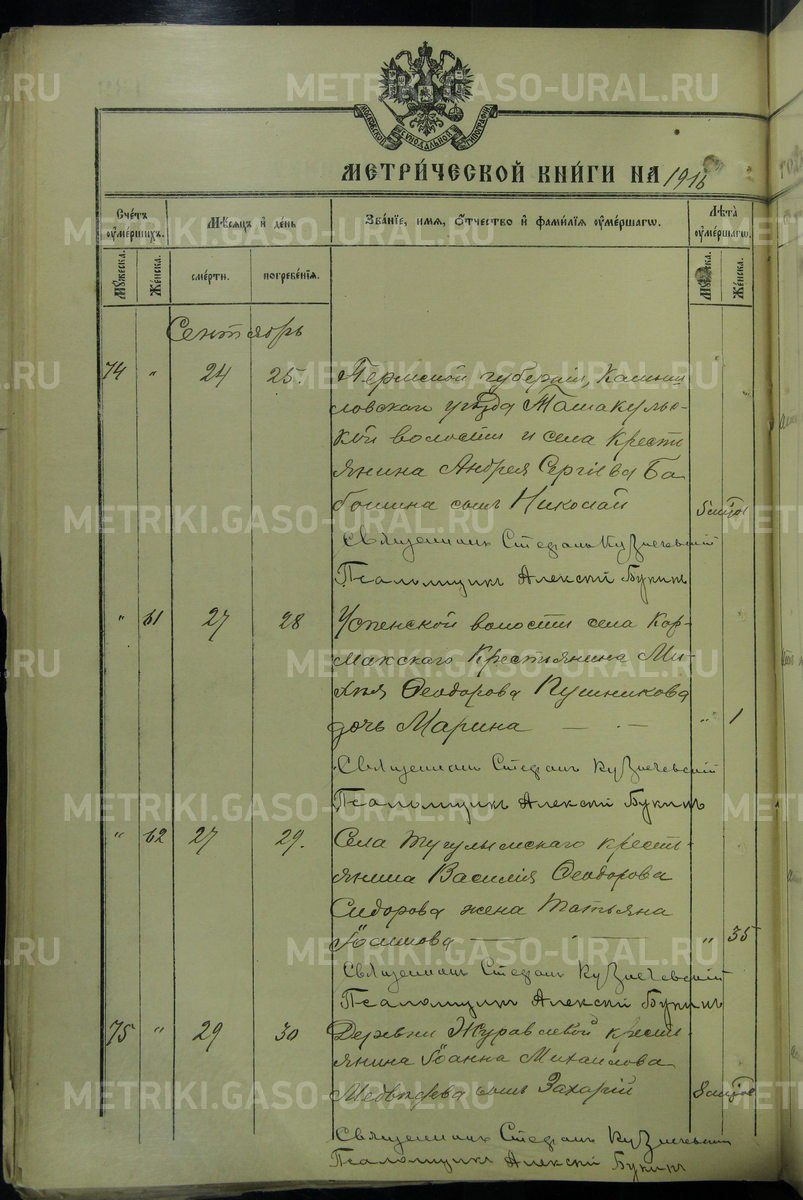 МЕТРИ́ЧЕСКОЙ КНИ́ГИ НА 1916
Сче́тъ ᲂу҆ме́ршихъ.
Мѣ́сяцъ и҆ де́нь
Зва́нїе, и҆мя, ѻ҆́тчество и҆ фами́лїѧ ᲂу҆ме́ршагѡ.
Лѣ́та ᲂу҆ме́ршагѡ.
Мꙋ́жеска.
Же́нска.
сме́рти.
погребе́нїѧ.
Мꙋ́жеска.
Же́нска.
Сентябрь
74 " 24 25. Пермской губерніи, Камыш
ловскаго уѣзда Тамакуль-
кой волости и села Крестъ
янина Андрея Сергіева Ба
бошина сынъ Николай
Священникъ Стефанъ Кузнечевскій
Псаломщикъ Алексій Букинъ
" 61 27 28 Успенской волости села Кор-
макскаго Крестьянина Ми-
Ѳеодорова Пушникова
дочь Марина — · — " 1
Священникъ Стефанъ Кузнечевскій
Псаломщикъ Алексій Букинъ
" 62 27 29. Села Тугулымскаго кресть-
янина Василія Ѳеодорова
Сидорова жена Татьяна
— · — " 35
Священникъ Стефанъ Кузнечевскій
Псаломщикъ Алексій Букинъ
75 " 29 30 Деревни Журавлевой кресть
янина Іоанна Михаилова
Медвѣдева сынъ Захарій
Священникъ Стефанъ Кузнечевскій
Псаломщикъ Алексій Букинъ
METRIKI.GASO-URAL.RU